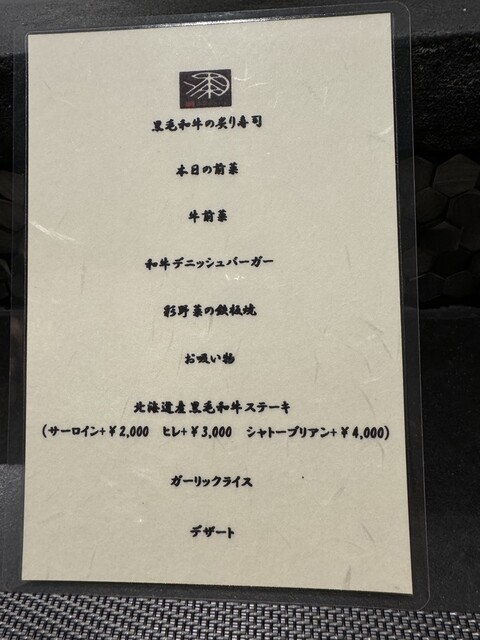 黒毛和牛の炙り寿司
本日の前菜
牛前菜
和牛デニッシュバーガー
彩野菜の鉄板焼
お吸い物
北海道産黒毛和牛ステーキ
(サーロイン+¥2,000 ヒレ+¥3,000 シャトーブリアン+¥4,000)
ガーリックライス
デザート